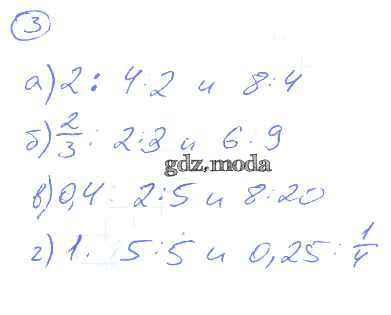 3
а) 2 : 4:2 и 8:4
б) 2/3 : 2:3 и 6:9
gdz.moda
в) 0,4 : 2:5 и 8:20
г) 1. 5:5 и 0,25 : 1/4